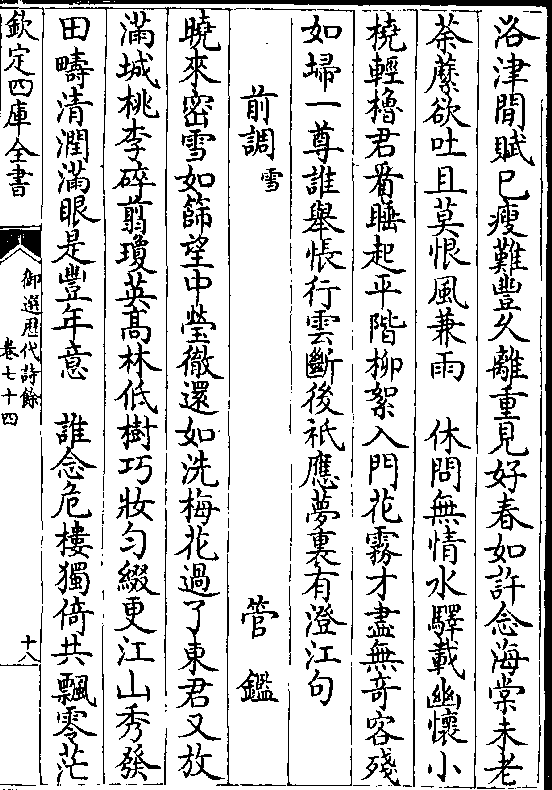 洛津間賦已瘦難豐久離重見好春如許念海棠未老
荼蘼欲吐且莫恨風兼雨　休問無情水驛載幽懷小
橈輕櫓君看睡起平階柳絮入門花霧才盡無竒容殘
如埽一尊誰舉悵行雲斷後祇應夢裏有澄江句
前調雪　管鑑
曉來密雪如篩望中瑩徹還如洗梅花過了東君又放
滿城桃李碎翦瓊英髙林低樹巧妝勻綴更江山秀發
田疇清潤滿眼是豐年意　誰念危樓獨倚共飄零茫
欽定四庫全書
御選歷代詩餘
卷七十四
十八